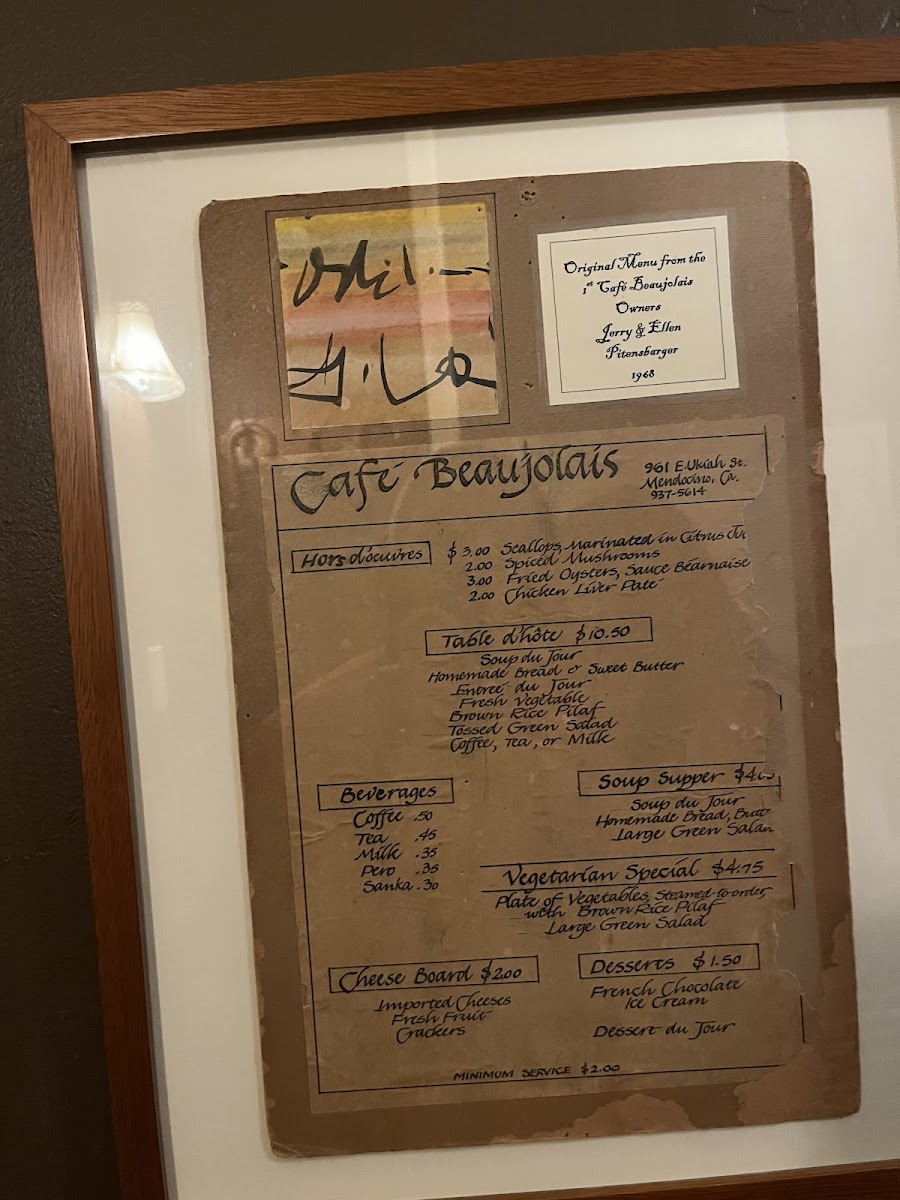 Original Menu from the
1st Café Beaujolais
Owners
Jerry & Ellen
Pitensbarger
1968
Café Beaujolais
961 E.Ukiah St.
Mendocino, Ca.
937-5614
Hors d'oeuvres
$3.00 Scallops, Marinated in Citrus
2.00 Spiced Mushrooms
3.00 Fried Oysters, Sauce Béarnaise
2.00 Chicken Liver Paté
Table d'hôte $10.50
Soup du Jour
Homemade Bread & Sweet Butter
Entreé du Jour
Fresh Vegetable
Brown Rice Pilaf
Tossed Green Salad
Coffee, Tea, or Milk
Beverages
Coffee .50
Tea .45
Milk .35
Pero .35
Sanka .30
Soup Supper
Soup du Jour
Homemade Bread,
Large Green Salad
Vegetarian Special $4.75
Plate of Vegetables, Steamed-to-order,
with Brown Rice Pilaf
Large Green Salad
Cheese Board $2.00
Imported Cheeses
Fresh Fruit
Crackers
Desserts $1.50
French Chocolate
Ice Cream
Dessert du Jour
MINIMUM SERVICE $2.00